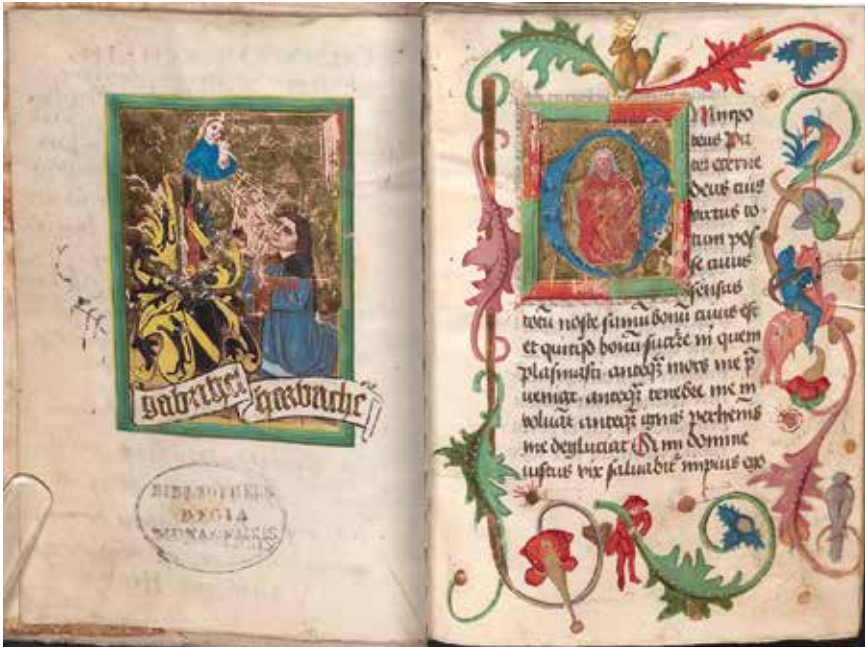 gabrihel garbache
BIBLIOTHECA
REGIA
MONACENSIS
Omnipo
tens Pa
ter eterne
deus cuius
virtus to-
tum pos
se cuius
sensus
totū nosse sumū bonū cuius est
et quitqd bonū quem
plasmasti anteqꝫ mors me p̄
ueniat anteqꝫ tenebre me in
uoluāt anteqꝫ ignis perhenis
me degluciat O mi domine
iustus vix saluabit̉ impius ego